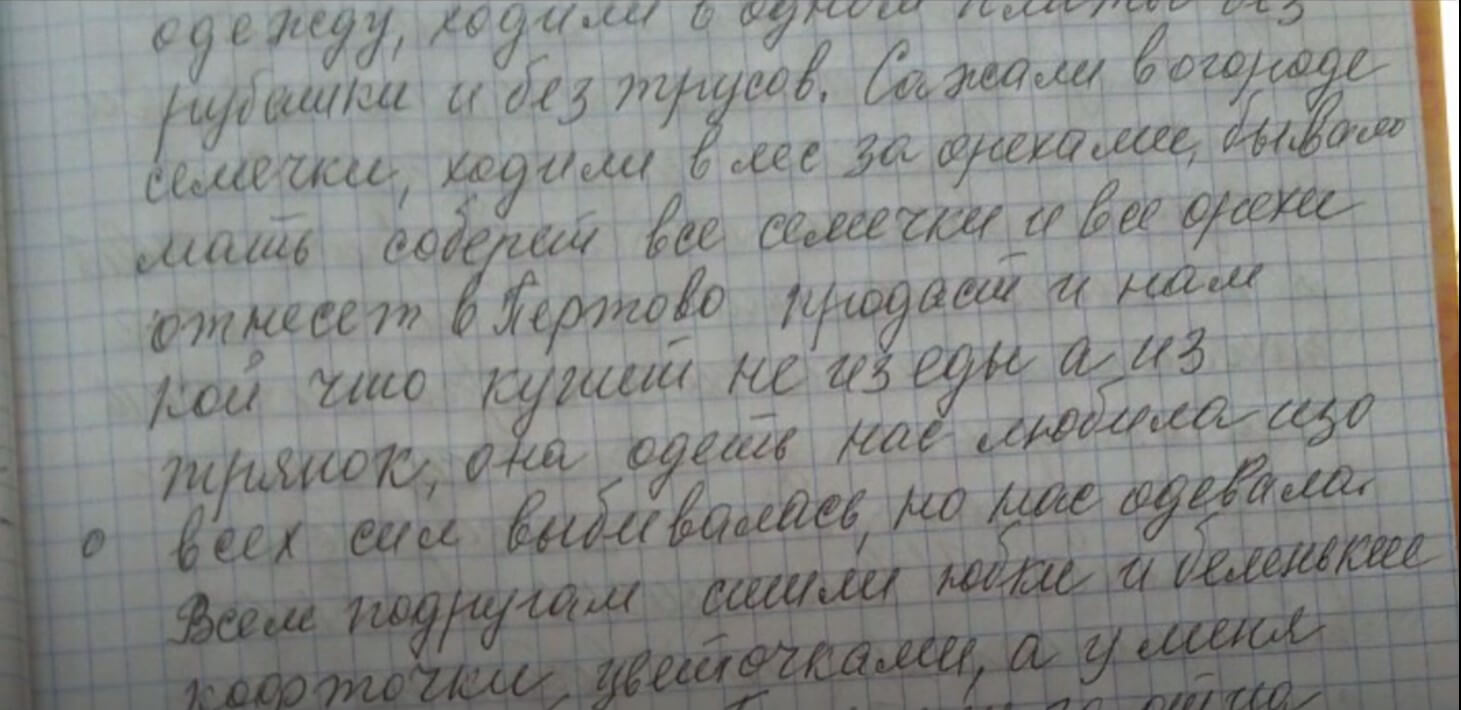 одежду, ходили в одном платье без
рубашки и без трусов. Сажали в огороде
семечки, ходили в лес за орехами, бывало
мать соберет все семечки и все орехи
отнесет в Пертово продаст и нам
кой что купит не из еды а из
тряпок, она одеть нас любила изо
всех сил выбивалась, но нас одевала.
Всем подругам сшили юбки и беленькие
кофточки цветочками, а у меня